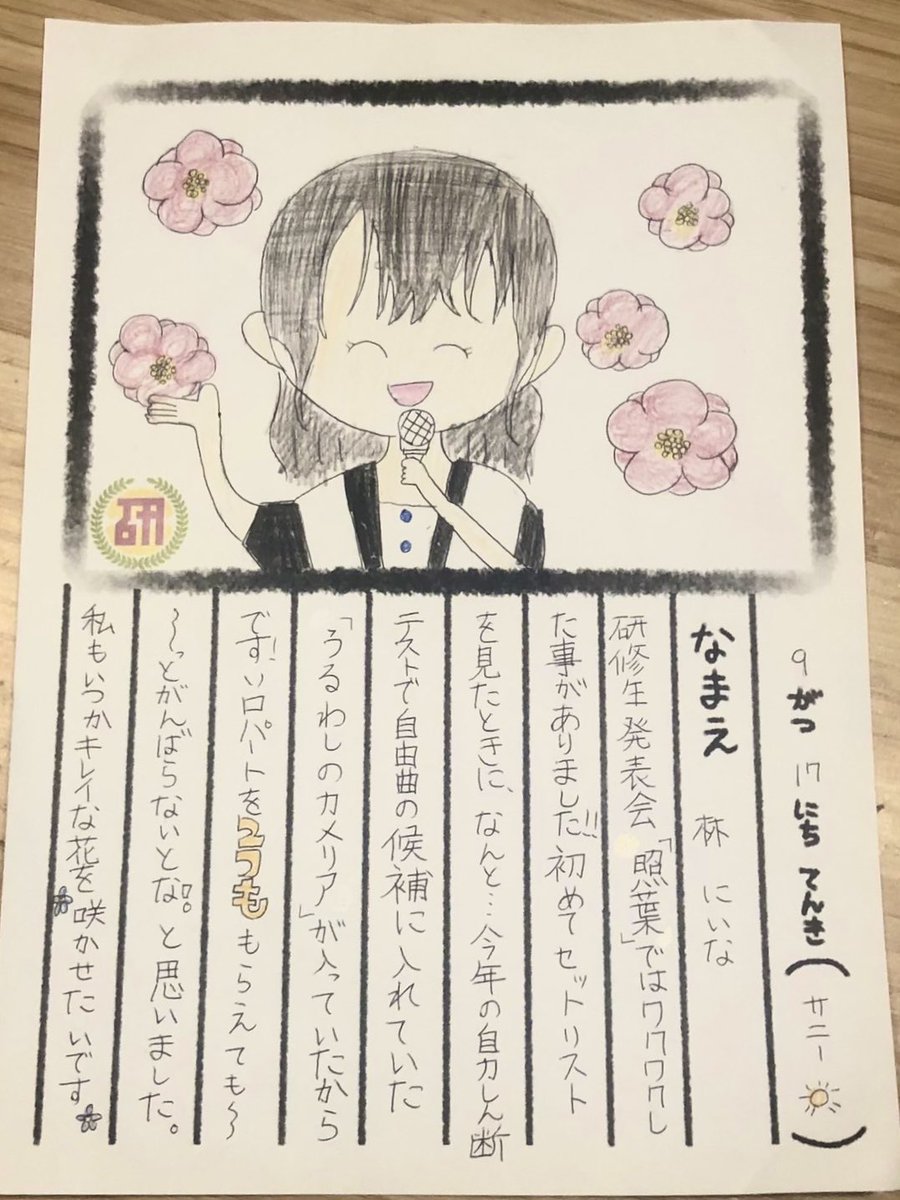 研
9がつ17にちてんき(サニー)
なまえ 林 にいな
研修生発表会「照葉」ではワクワクし
た事がありました!!初めてセットリスト
を見たときに、なんと…今年の自力しん断
テストで自由曲の候補に入れていた
「うるわしのカメリア」が入っていたから
です!ソロパートを2つももらえても〜
〜っとがんばらないとな!。と思いました。
私もいつかキレイな花を咲かせたいです